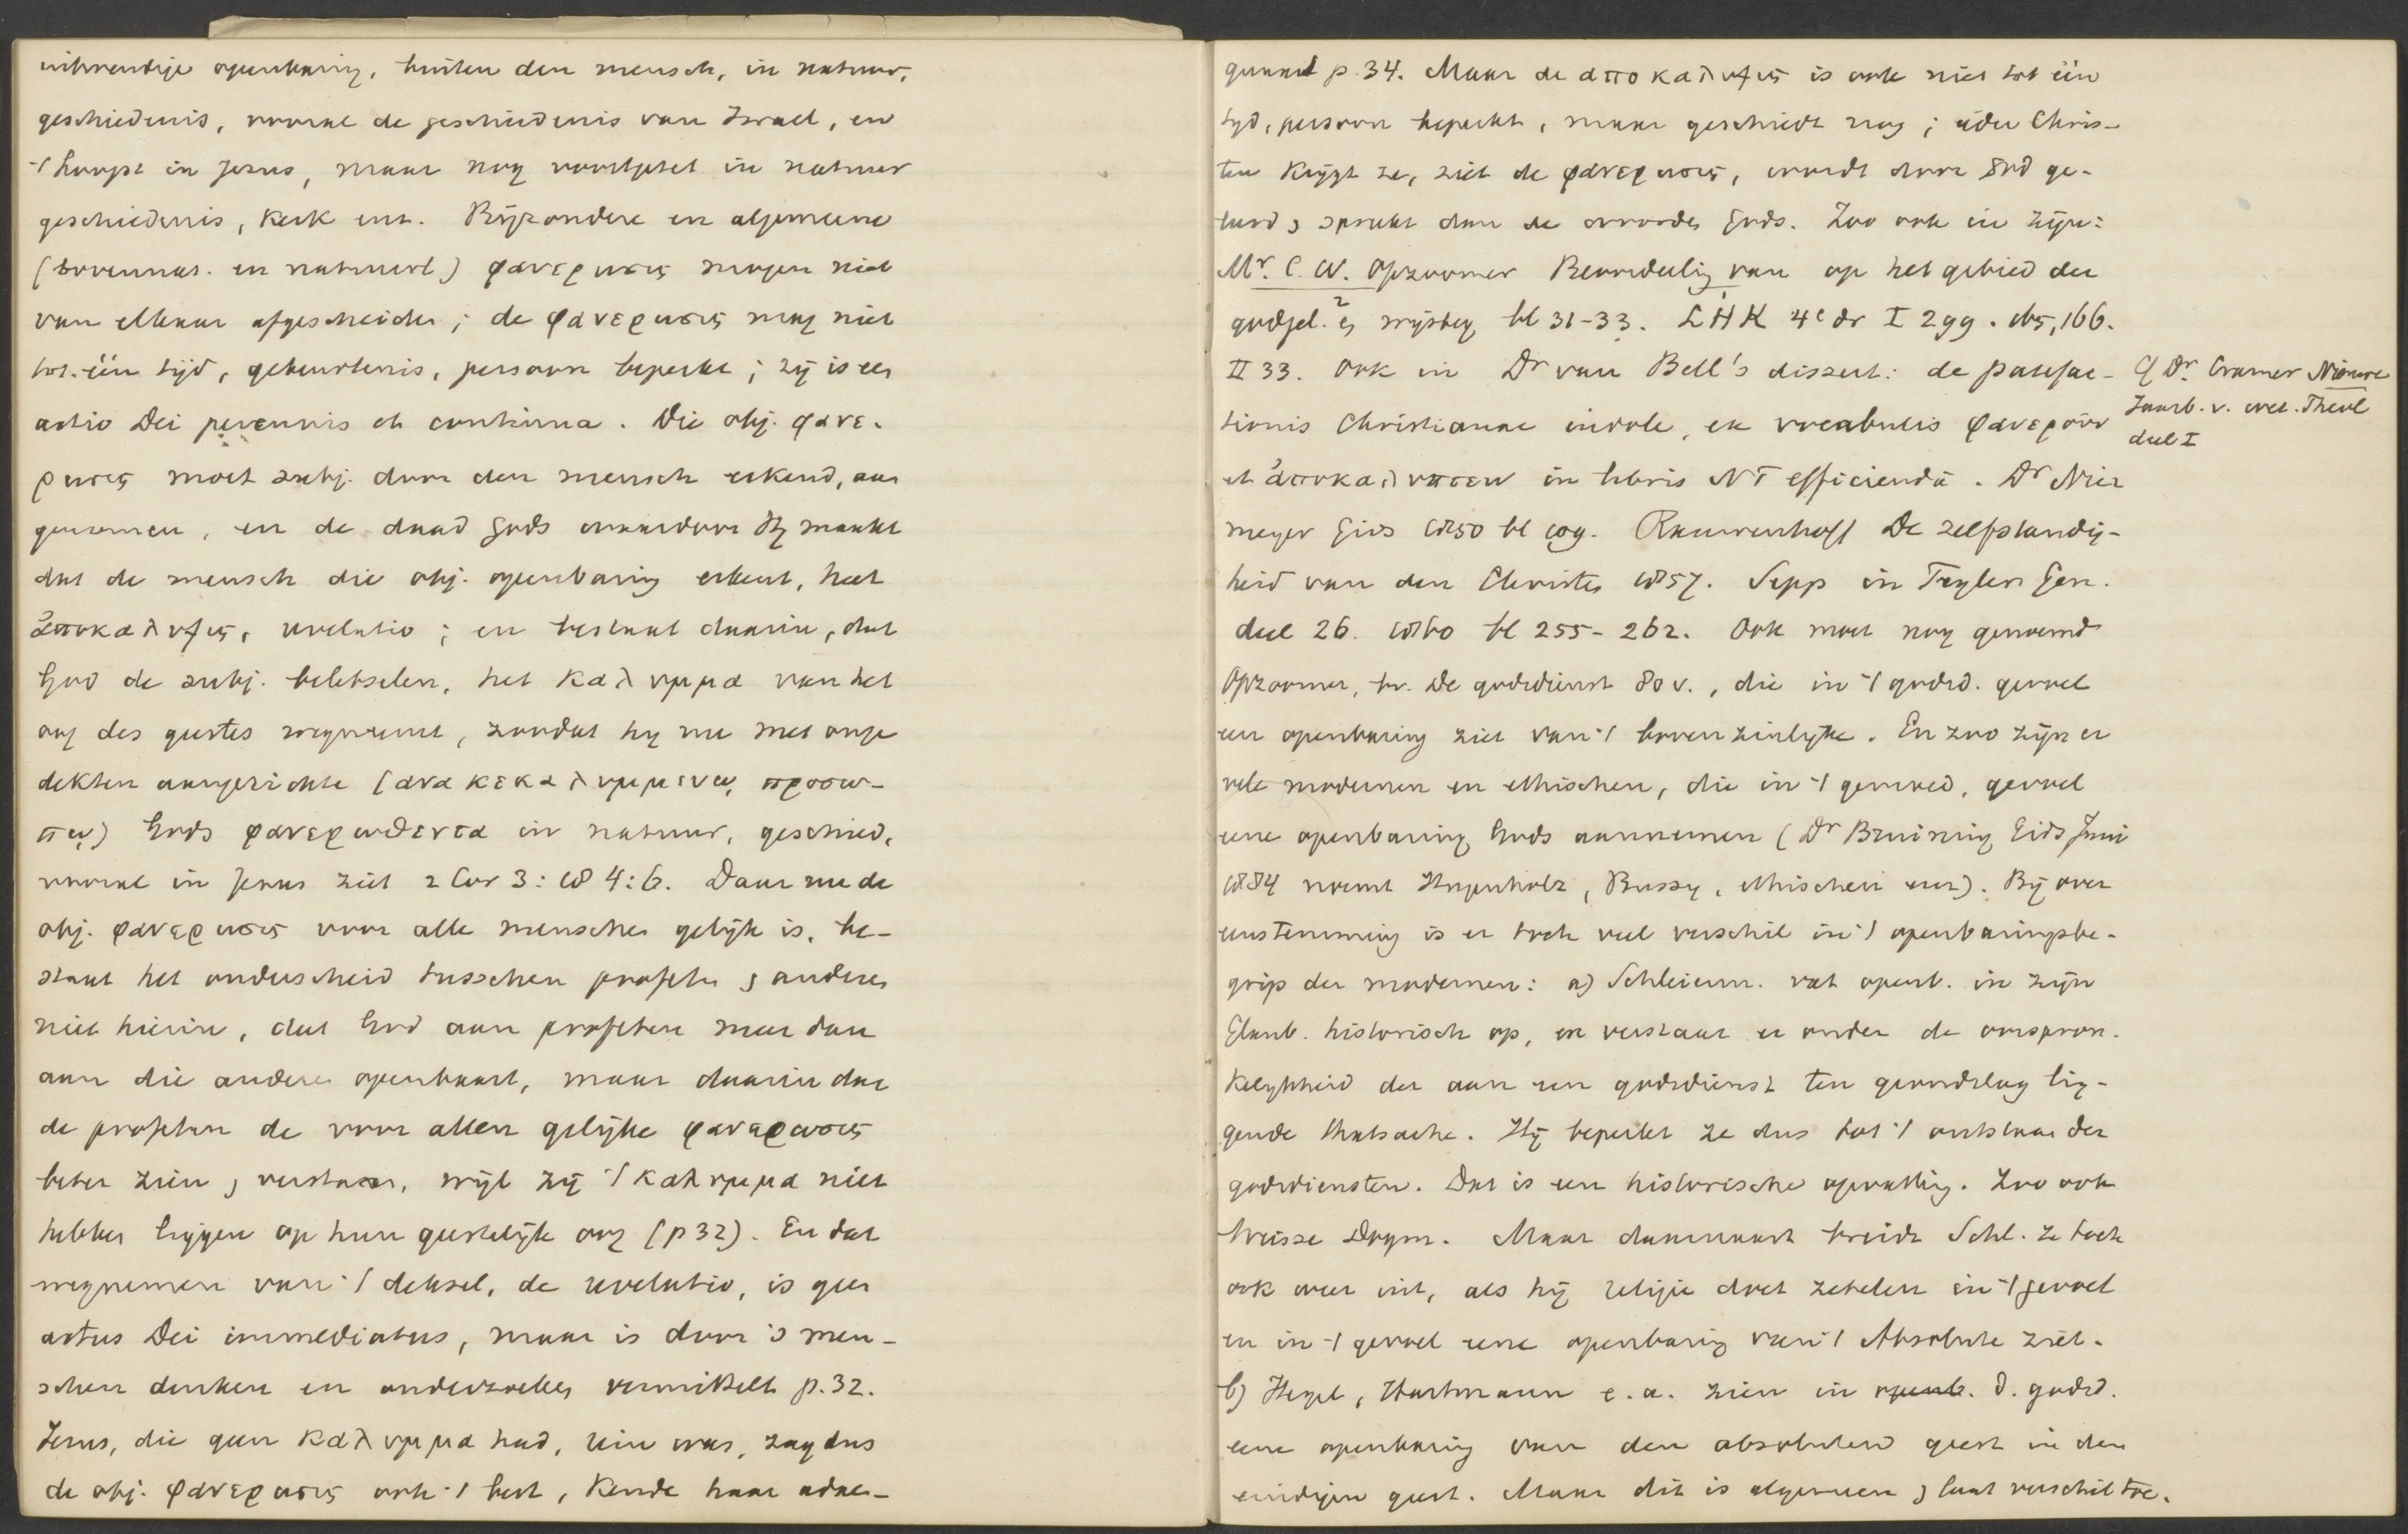 uitwendige openbaring, buiten den mensch, in natuur,
geschiedenis, vooral de geschiedenis van Israel, en
't hoogst in Jezus, maar nog voortgezet in natuur
geschiedenis, kerk enz. Bijzondere en algemeene
(bovennat. en natuurl) φανερωσις mogen niet
van elkaar afgescheiden; de φανερωσις mag niet
tot één tijd, gebeurtenis, persoon beperkt; zij is een
actio Dei perennis et continua. Die obj. φανε-
ρωσις moet subj. door den mensch erkend, aan
genomen, en de daad Gods waardoor Hij maakt
dat de mensch die obj. openbaring erkent, heet
ἀποκαλυψις, revelatio; en bestaat daarin, dat
God de subj. beletselen, het καλυμμα van het
oog des geestes wegneemt, zoodat hij nu met onge
dekten aangezichte (ανακεκαλυμμενῳ προσω-
πῳ) Gods φανερωθεντα in natuur, geschied.
vooral in Jezus ziet 2 Cor 3:18 4:6. Daar nu de
obj. φανερωσις voor alle menschen gelijk is, be-
staat het onderscheid tusschen profeten & anderen
niet hierin, dat God aan profeten meer dan
aan die anderen openbaart, maar daarin dat
de profeten de voor allen gelijke φανερωσις
beter zien & verstaan, wijl zij 't καλυμμα niet
hebben liggen op hun geestelijk oog (p 32). En dat
wegnemen van 't deksel, de revelatio, is geen
actus Dei immediatus, maar is door 's men-
schen denken en onderzoeken vermiddeld p. 32.
Jezus, die geen καλυμμα had, rein was, zag dus
de obj. φανερωσις ook 't best, kende haar adae-
quaat p. 34. Maar de αποκαλυψις is ook niet tot één
tijd, persoon beperkt, maar geschiedt nog; ieder Chris-
ten krijgt ze, ziet de φανερωσις, wordt door God ge-
leerd & spreekt dan de woorden Gods. Zoo ook in zijn:
Mr. C. W. Opzoomer Beoordeeling van op het gebied der
godgel. en wijsbeg. bl 31-33. LHK 4e dr I 299. 165, 166.
II 33. Ook in Dr van Bell's dissert: de patefac-
tionis Christianae indole, ex vocabulis φανεροῦν
et ἀποκαλυπτειν in libris NT efficienda. Dr Nier
meyer Gids 1850 bl 109. Rauwenhoff De zelfstandig-
heid van den Christen 1857. Sepp in Teylers Gen.
deel 26. 1860 bl 255-262. Ook moet nog genoemd
Opzoomer, br. De godsdienst 80 v., die in 't godsd. gevoel
een openbaring ziet van 't bovenzinlijke. En zoo zijn er
vele modernen en ethischen, die in 't gemoed, gevoel
eene openbaring Gods aannemen (Dr Bruining Gids Juni
1884 noemt Hugenholtz, Bussy, ethischen enz). Bij over
eenstemming is er toch veel verschil in 't openbaringsbe-
grip der modernen: a) Schleierm. vat openb. in zijn
Glaub. historisch op, en verstaat er onder de oorspron-
kelijkheid der aan een godsdienst ten grondslag lig-
gende Thatsache. Hij beperkt ze dus tot 't ontstaan der
godsdiensten. Dat is een historische opvatting. Zoo ook
Weisse Dogm. Maar daarnaast breidt Schl. ze toch
ook weer uit, als hij religie doet zetelen in 't gevoel
en in 't gevoel eene openbaring van 't Absolute ziet.
b) Hegel, Hartmann e.a. zien in openb. d. godsd.
eene openbaring van den absoluten geest in den
eindigen geest. Maar dit is algemeen & laat verschil toe.
Cf Dr. Cramer Nieuwe
Jaarb. v. wet. Theol
deel I